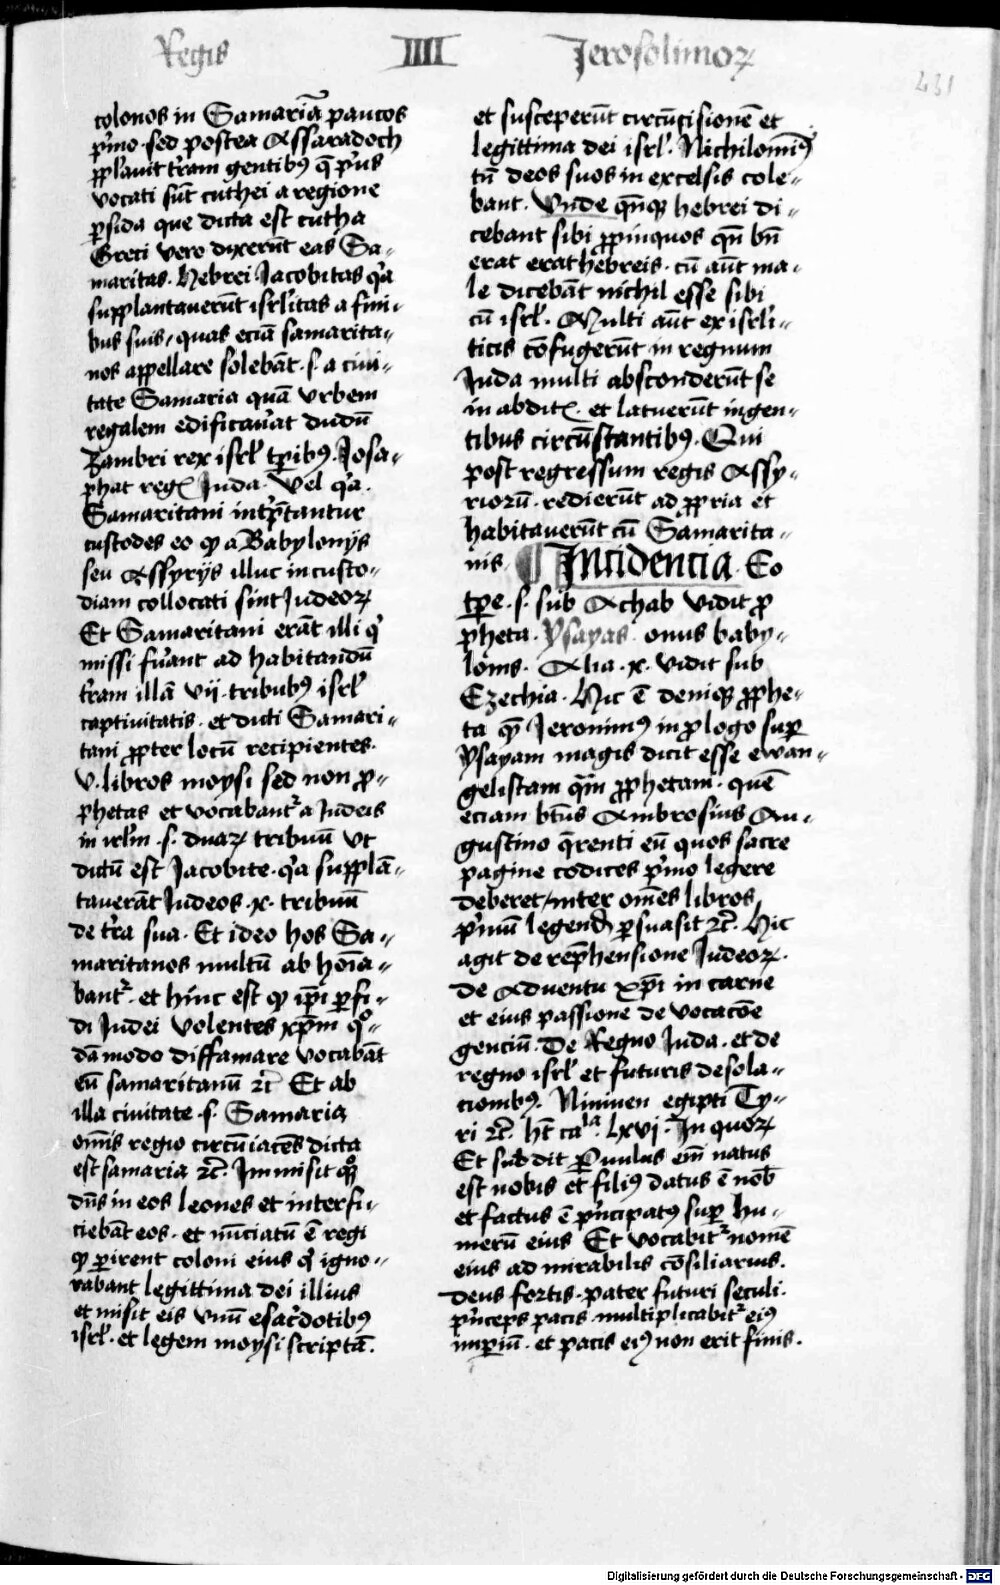 Regis IIII Jerosolimoꝝ
431
colonos in Samariā paucos
p̄mo · sed postea Assaradoch
ꝓpl'auit t'ram gentibꝰ q̄ p'us
vocati sūt cuthei a regione
ꝑsida que dicta est cutha
Greci vero dixerūt eas Sa-
maritas · Hebrei Jacobitas q'a
supplantauerūt isrl'itas a fini-
bus suis / quas eciā samarita-
nos appellare solebāt · s · a ciui-
tate Samaria quā vrbem
regalem edificau'at dudū
Zambri rex isrl' tꝑibꝰ Josa-
phat reg̃ Juda · Vel q'a
Samaritani int'p̄tantur
custodes eo ꝙ a Babylonijs
seu Assyrijs illuc in custo-
diam collocati sint Judeoꝝ
Et Samaritani erāt illi q'
missi fu'ant ad habitandū
t'ram illā vij · tribubꝰ isrl'
captiuitatis · et dicti Samari-
tani ꝓpter locū recipientes ·
v · libros moysi sed non ꝓ-
phetas et vocabant᷑ a Judeis
in irl'm · s · duaꝝ tribuū vt
dictū est Jacobite · q'a supplā-
tauerāt Judeos · x · tribuū
de t'ra sua · Et ideo hos Sa-
maritanos multū ab hoīa-
bant᷑ · et hinc est ꝙ ip̄i ꝑfi-
di Judei volentes xp̄m qͦ-
dāmodo diffamare vocabāt
eū samaritanū ⁊c̄ Et ab
illa ciuitate · s · Samaria
om̄is regio circūiacēs dicta
est samaria ⁊c̄ · Immisit qꝫ
dn̄s in eos leones et interfi-
ciebāt eos · et nūciatū ē regi
ꝙ ꝑirent coloni eius q' igno-
rabant legittima dei illius
et misit eis vnū esac'dotibꝰ
isrl' · et legem moysi scriptā ·
et susceperūt circūcisionē et
legittima dei isrl' · Nichilominꝰ
tn̄ deos suos in excelsis cole-
bant · Vnde qn̄qꝫ hebrei di-
cebant sibi ꝓpinquos qn̄ bn̄
erat erat hebreis · cū aūt ma-
le dicebāt nichil esse sibi
cū isrl' · Multi aūt ex isrl'i-
ticis cōfugerūt in regnum
Juda multi absconderūt se
in abdit̃ · et latuerūt in gen-
tibus circūstantibꝰ · Qui
post regressum regis Assy-
riorū · redierūt ad ꝓpria et
habitauerūt cū Samarita-
nis · ¶ Incidencia · Eo
tꝑe · s · sub Achab vidit ꝓ
pheta · Ysayas · onus baby-
lonis · Alia · x · vidit sub
Ezechia · Hic ē deniqꝫ ꝓphe-
ta qē Jeronimꝰ in ꝓlogo suꝑ
Ysayam magis dicit esse ewan-
gelistam qm̄ ꝓphetam · quē
eciam bt̄us Ambrosius Au-
gustino q̄renti eū quos sacre
pagine codices p'mo legere
deberet / inter om̄es libros
p'mū legend̄ ꝑsuasit ⁊c̄ · Hic
agit de rep̄hensione Judeoꝝ ·
de Aduentu xp̄i in carne
et eius passione de vocacōe
genciū · De Regno Juda · et de
regno isrl' et futuris desola-
cionibꝰ · Niniuen egipti Ty-
ri ⁊c̄ · ht̄ caˡᵃ · lxvj · In quoꝝ
Et subdit Paruulus em̄ natus
est nobis et filiꝰ datus ē nob̄
et factus ē p'ncipatꝰ suꝑ hu-
merū eius Et vocabit᷑ nomē
eius admirabilis cōsiliarius ·
deus fortis · pater futuri seculi ·
p'nceps pacis · multiplicabit᷑ eiꝰ
imꝑiū · et pacis eiꝰ non erit finis ·
Digitalisierung gefördert durch die Deutsche Forschungsgemeinschaft - DFG